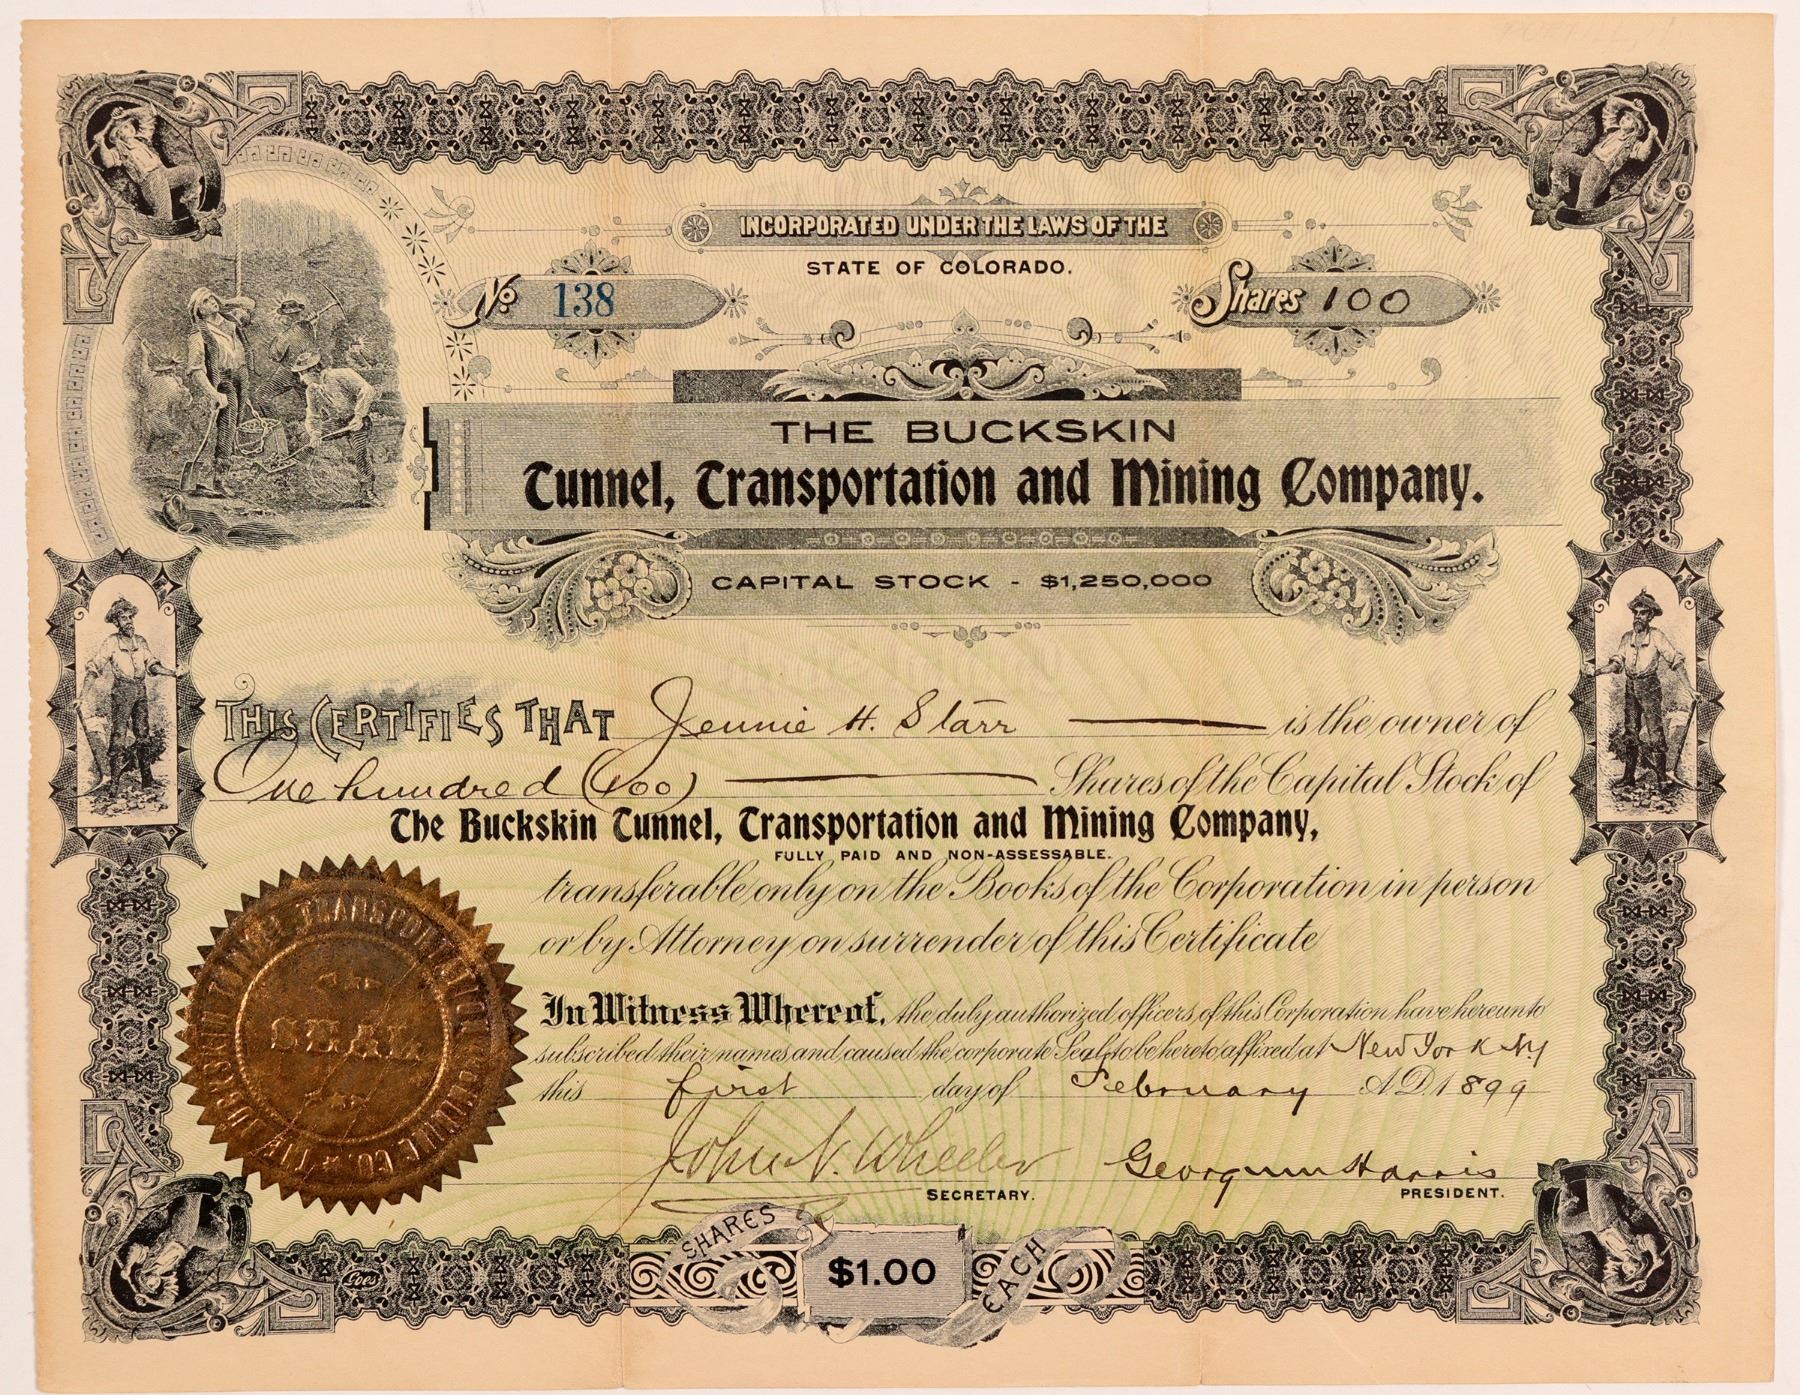 INCORPORATED UNDER THE LAWS OF THE
STATE OF COLORADO.
No 138
Shares 100
THE BUCKSKIN
Tunnel, Transportation and Mining Company.
CAPITAL STOCK - $1,250,000
THIS CERTIFIES THAT Jennie H. Starr is the owner of
One hundred (100) Shares of the Capital Stock of
The Buckskin Tunnel, Transportation and Mining Company,
FULLY PAID AND NON-ASSESSABLE.
transferable only on the Books of the Corporation in person
or by Attorney on surrender of this Certificate
In Witness Whereof, the duly authorized officers of this Corporation have hereunto
subscribed their names and caused the corporate Seal to be hereto affixed at New York NY
this first day of February A.D. 1899
John N. Wheeler
SECRETARY.
Harris
PRESIDENT.
SEAL
SHARES $1.00 EACH
Goes